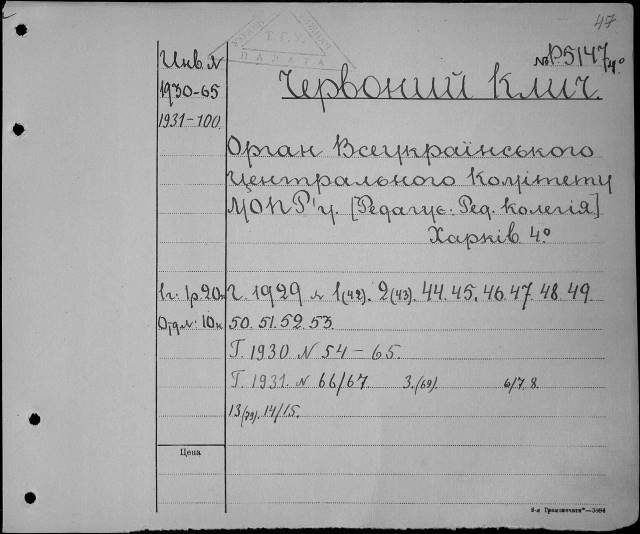 47
Инв. №
№ Р5147 4º
1930-65
Червоний Клич.
1931-100.
Орган Всеукраїнського
Центрального Комітету
МОПР'у. [Редагує: Ред. колегія]
Харків 4º
1г: 1р.20к Г. 1929 № 1(42). 2(43). 44. 45. 46. 47. 48. 49.
Отд.№: 10к 50. 51. 52. 53.
Г. 1930 № 54-65.
Г. 1931. № 66/67. 3.(69). 6/7. 8.
13(79). 14/15.
Цена